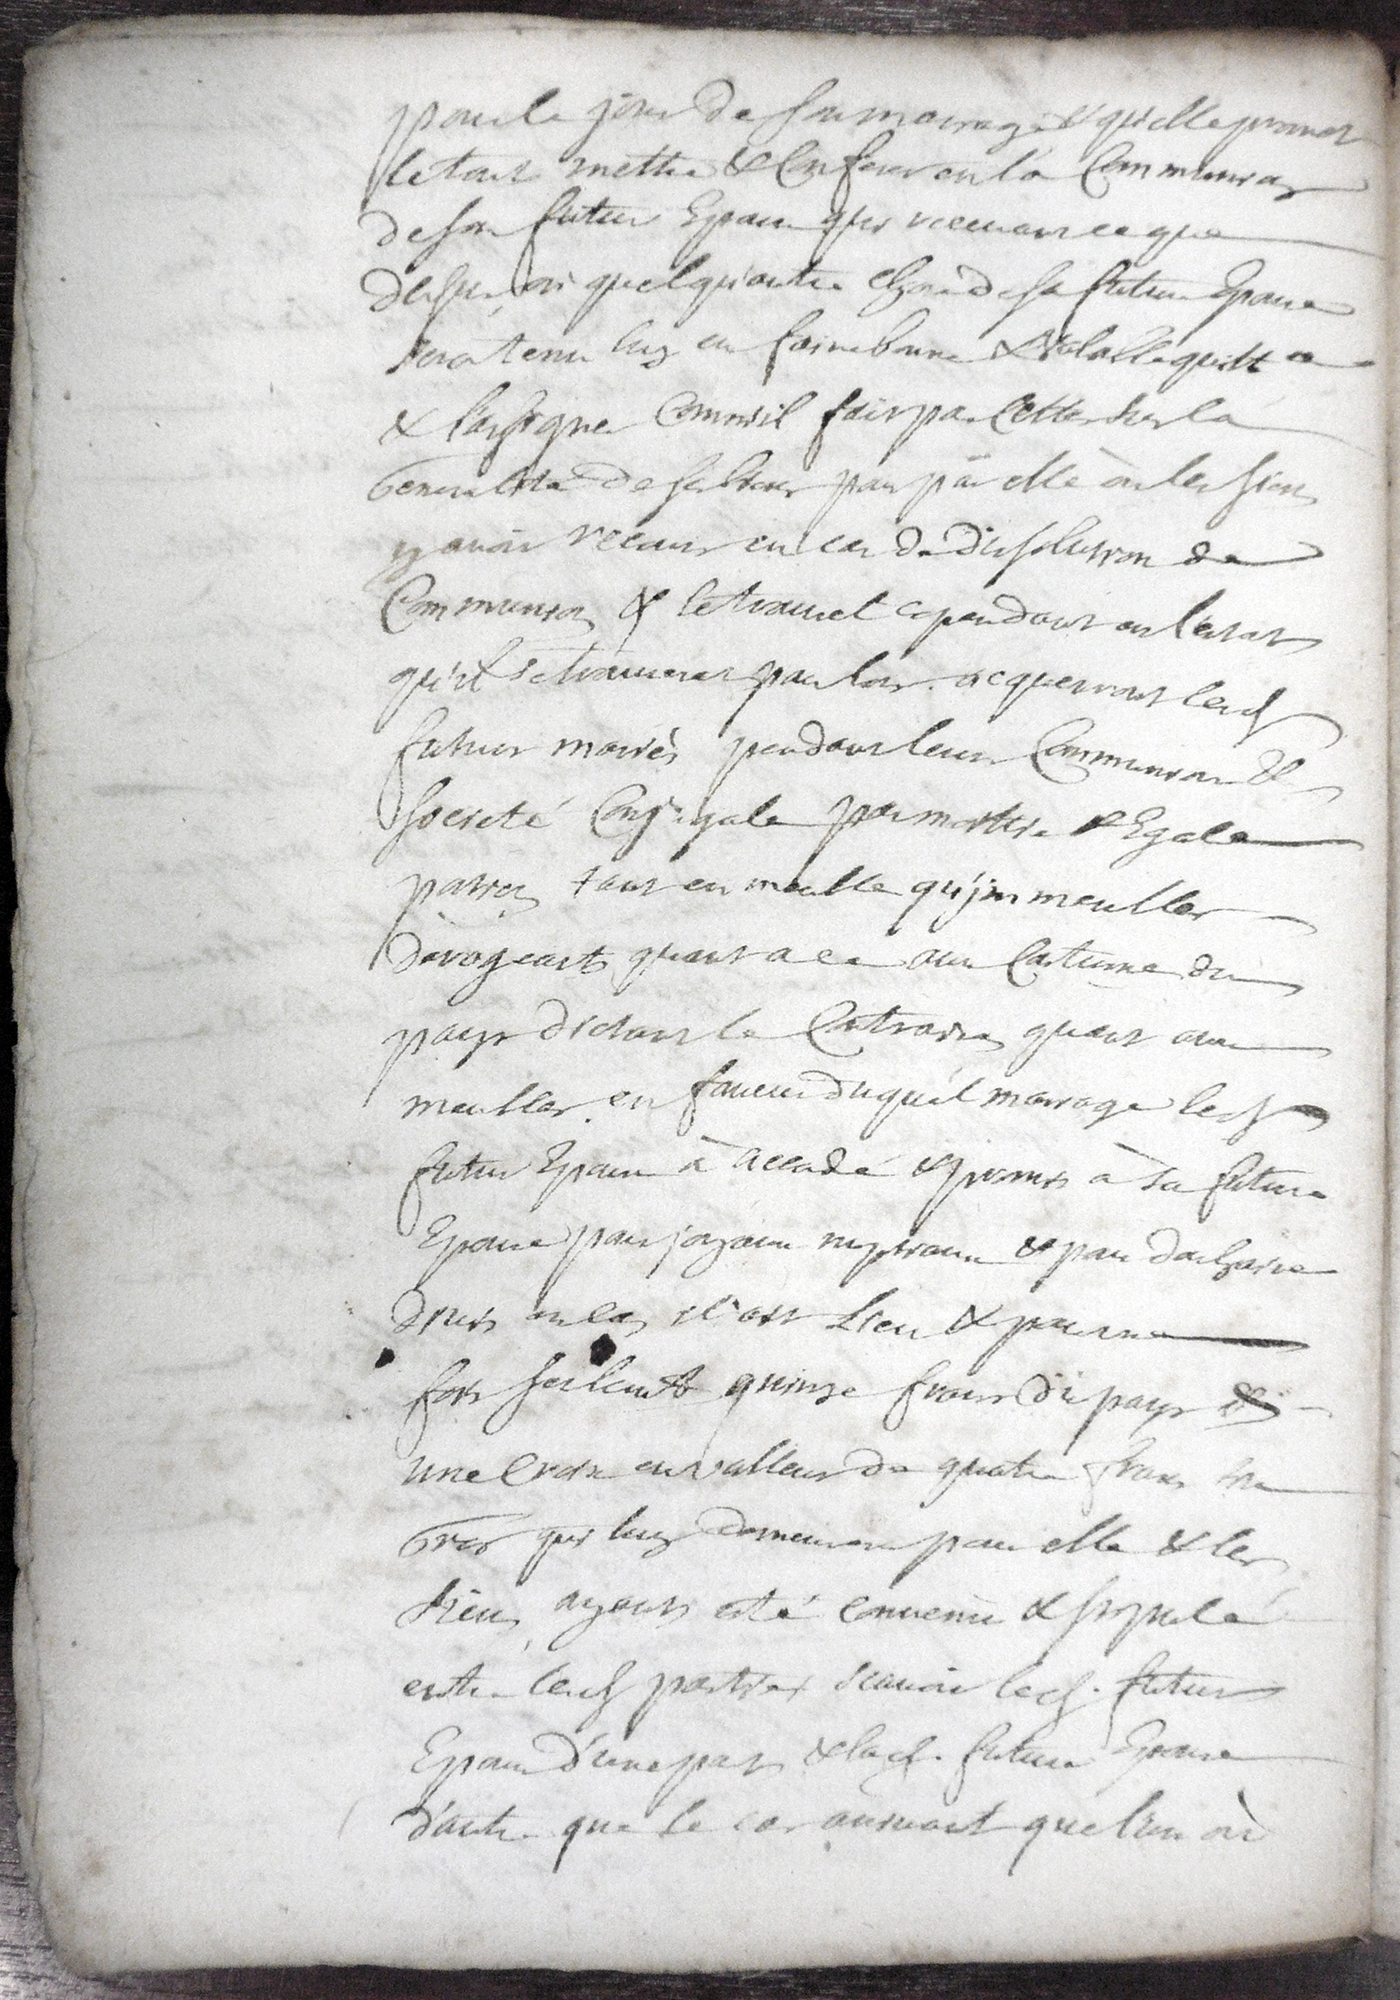 pour le jour de son mariage & qu'elle promet
le tout mettre & conferer en la communion
de son futur Epoux qui recevant ce que
dessus ou quelqu'autre chose de sa future Epouse
sera tenu luy en faire bonne & valable quittance
& l'assigne comme il fait par cette sur la
Generalité de ses biens pour par elle ou les siens
y avoir recours en cas de dissolution de
Communion & le trouvel cependant en l'estat
qu'il se trouvera pour lors acquerront lesd
futurs mariés pendant leur Communion &
societé Conjugale par moitié & Egale
portion tant en meuble qu'immeubles
derogeants quant a ce aux Coutume du
pays dictant le Contraire quant aux
meubles en faveur duquel mariage led
futur Epoux à accordé & promis à sa future
Epouse pour joyaux nuptiaux & pour
ou cas il ait lieu & pour une
fois seulement quinze frans du pays &
une Croix en valleur de quatre frans
Gros qui luy demeurera pour elle & les
siens ayant esté convenu & stipulé
entre lesd parties scavoir led. futur
Epoux d'une part & lad. future Epouse
d'autre que le cas arrivant que l'un ou